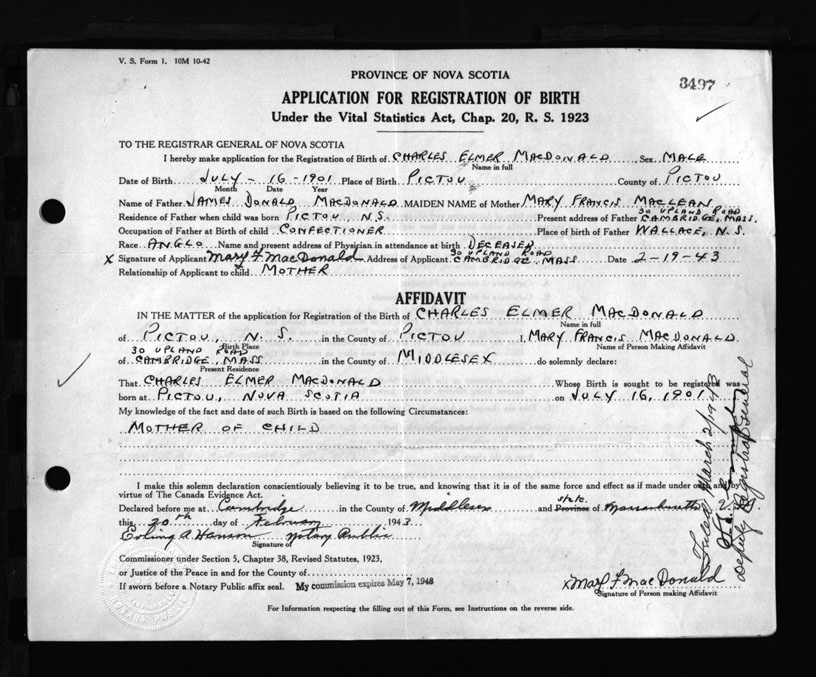 V. S. Form 1. 10M 10-42
3497
PROVINCE OF NOVA SCOTIA
APPLICATION FOR REGISTRATION OF BIRTH
Under the Vital Statistics Act, Chap. 20, R. S. 1923
TO THE REGISTRAR GENERAL OF NOVA SCOTIA
I hereby make application for the Registration of Birth of CHARLES ELMER MACDONALD, Sex MALE
Name in full
Date of Birth JULY - 16 - 1901 Place of Birth PICTOU County of PICTOU
Month Date Year
Name of Father JAMES DONALD MACDONALD MAIDEN NAME of Mother MARY FRANCIS MACLEAN
30 UPLAND ROAD
Residence of Father when child was born PICTOU, N.S. Present address of Father CAMBRIDGE, MASS.
Occupation of Father at Birth of child CONFECTIONER Place of birth of Father WALLACE, N.S.
Race ANGLO Name and present address of Physician in attendance at birth DECEASED
30 UPLAND ROAD
X Signature of Applicant Mary F MacDonald Address of Applicant CAMBRIDGE, MASS Date 2-19-43
Relationship of Applicant to child MOTHER
AFFIDAVIT
IN THE MATTER of the application for Registration of the Birth of CHARLES ELMER MACDONALD
Name in full
of PICTOU, N.S. in the County of PICTOU I, MARY FRANCIS MACDONALD
Birth Place Name of Person Making Affidavit
30 UPLAND ROAD
of CAMBRIDGE, MASS in the County of MIDDLESEX do solemnly declare:
Present Residence
That CHARLES ELMER MACDONALD Whose Birth is sought to be registered was
born at PICTOU, NOVA SCOTIA on JULY 16, 1901
My knowledge of the fact and date of such Birth is based on the following Circumstances:
MOTHER OF CHILD
I make this solemn declaration conscientiously believing it to be true, and knowing that it is of the same force and effect as if made under oath and by
virtue of The Canada Evidence Act.
state
Declared before me at Cambridge in the County of Middlesex and Province of Massachusetts
this 20th day of February 1943
Erling A. Hanson Notary Public
Signature of
Commissioner under Section 5, Chapter 38, Revised Statutes, 1923,
or Justice of the Peace in and for the County of
If sworn before a Notary Public affix seal. My commission expires May 7, 1948
x Mary F MacDonald
Signature of Person making Affidavit
For Information respecting the filling out of this Form, see Instructions on the reverse side.
Filed March 2/1943
Deputy Registrar General